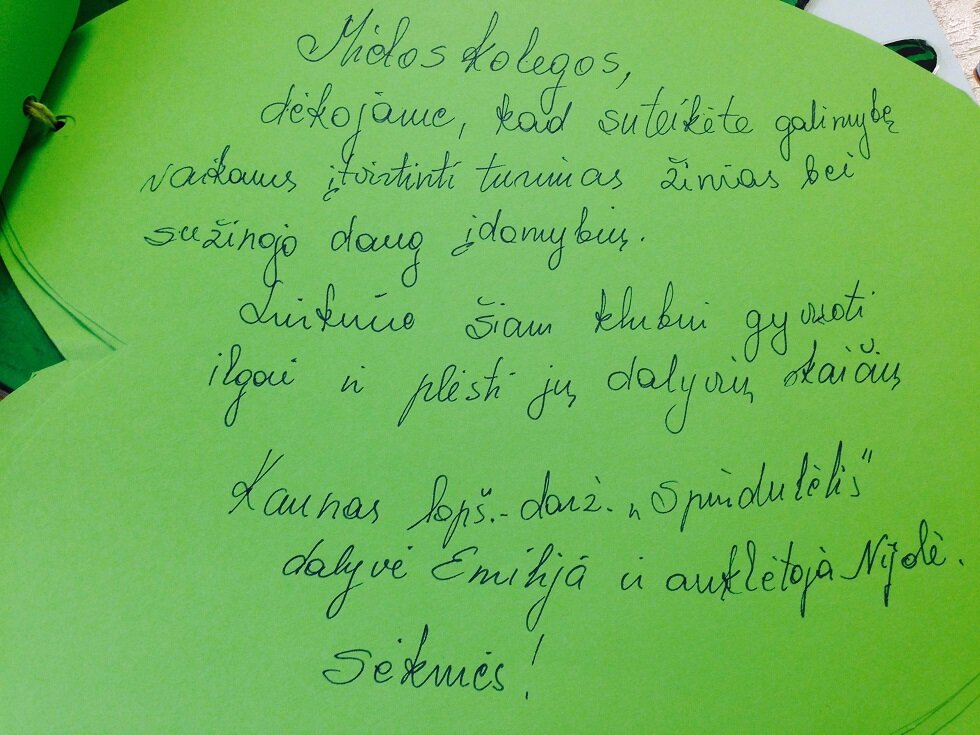 Mielos kolegos,
dėkojame, kad suteikėte galimybę
vaikams įtvirtinti turimas žinias bei
sužinojo daug įdomybių.
Linkime šiam klubui gyvuoti
ilgai ir plėsti jų dalyvių skaičių
Kaunas lopš.-darž. „Spindulėlis“
dalyvė Emilija ir auklėtoja Nijolė.
Sėkmės!